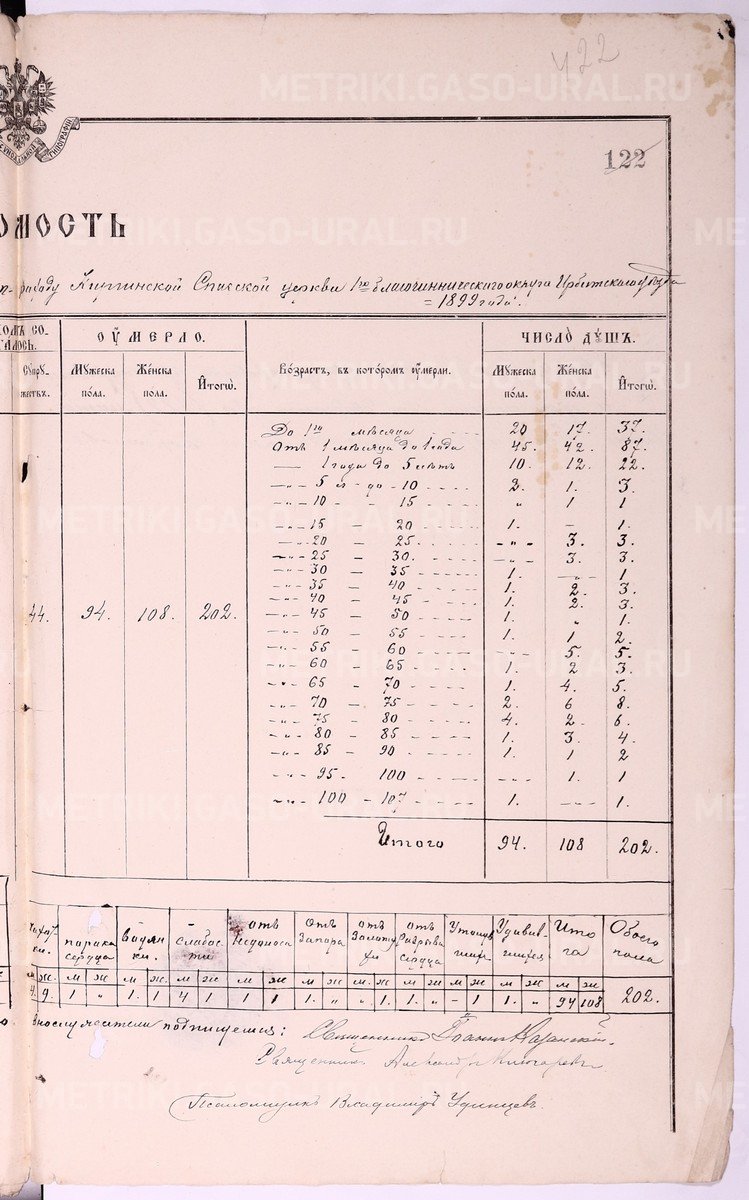 422
METRIKI.GASO-URAL.RU
122
ОМОСТЬ
приходу Киргинской Спасской церкви 1го благочиннического округа Ирбитского уезда
= 1899 года.
ОУМЕРЛО. ЧИСЛО ДУШЪ.
Мужеска пола. Женска пола. Итого Возрастъ, въ которомъ оумерли. Мужеска пола. Женска пола. Итого
До 1го мѣсяца 20 17. 37.
Отъ 1 мѣсяца до 1 года 45. 42. 87.
— 1 года до 5 лѣтъ 10. 12. 22.
-„- 5 л - до - 10 - 2. 1. 3.
-„- 10 - - 15 „ 1 1
-„- 15 - 20 1. - 1.
-„- 20 - 25. -„- 3. 3.
-„- 25 - 30. -„- 3. 3.
-„- 30 - 35 1. -„- 1
-„- 35 - 40 1. 2. 3.
-„- 40 - 45 1. 2. 3.
44. 94. 108. 202. -„- 45 - 50 1. „ 1.
-„- 50 - 55 1. 1 2.
-„- 55 - 60 -„- 5. 5.
-„- 60 - 65 1. 2 3.
-„- 65 - 70 1. 4. 5.
-„- 70 - 75 2. 6 8.
-„- 75 - 80 4. 2. 6.
-„- 80 - 85 1. 3. 4.
-„- 85 - 90 1. 1 2
-„- 95. 100 -„- 1. 1
-„- 100 - 107 1. -„- 1.
Итого 94. 108 202.
парока сердца водянки. слабости отъ недоноса отъ Запора отъ Золотухи отъ Разрыва сердца Утонувших Удавившихся Итога Обоего пола
м ж. м ж м ж м ж м ж м ж м ж м ж. м ж м ж м ж
4. 9. 1 „ 1. 1 4 1 1 1 1. „ „ 1. 1. „ - 1 1. „ 94 108 202.
подпишемся: Священникъ Іоаннъ
Священникъ Александръ
Псаломщикъ Владимиръ Удинцевъ.